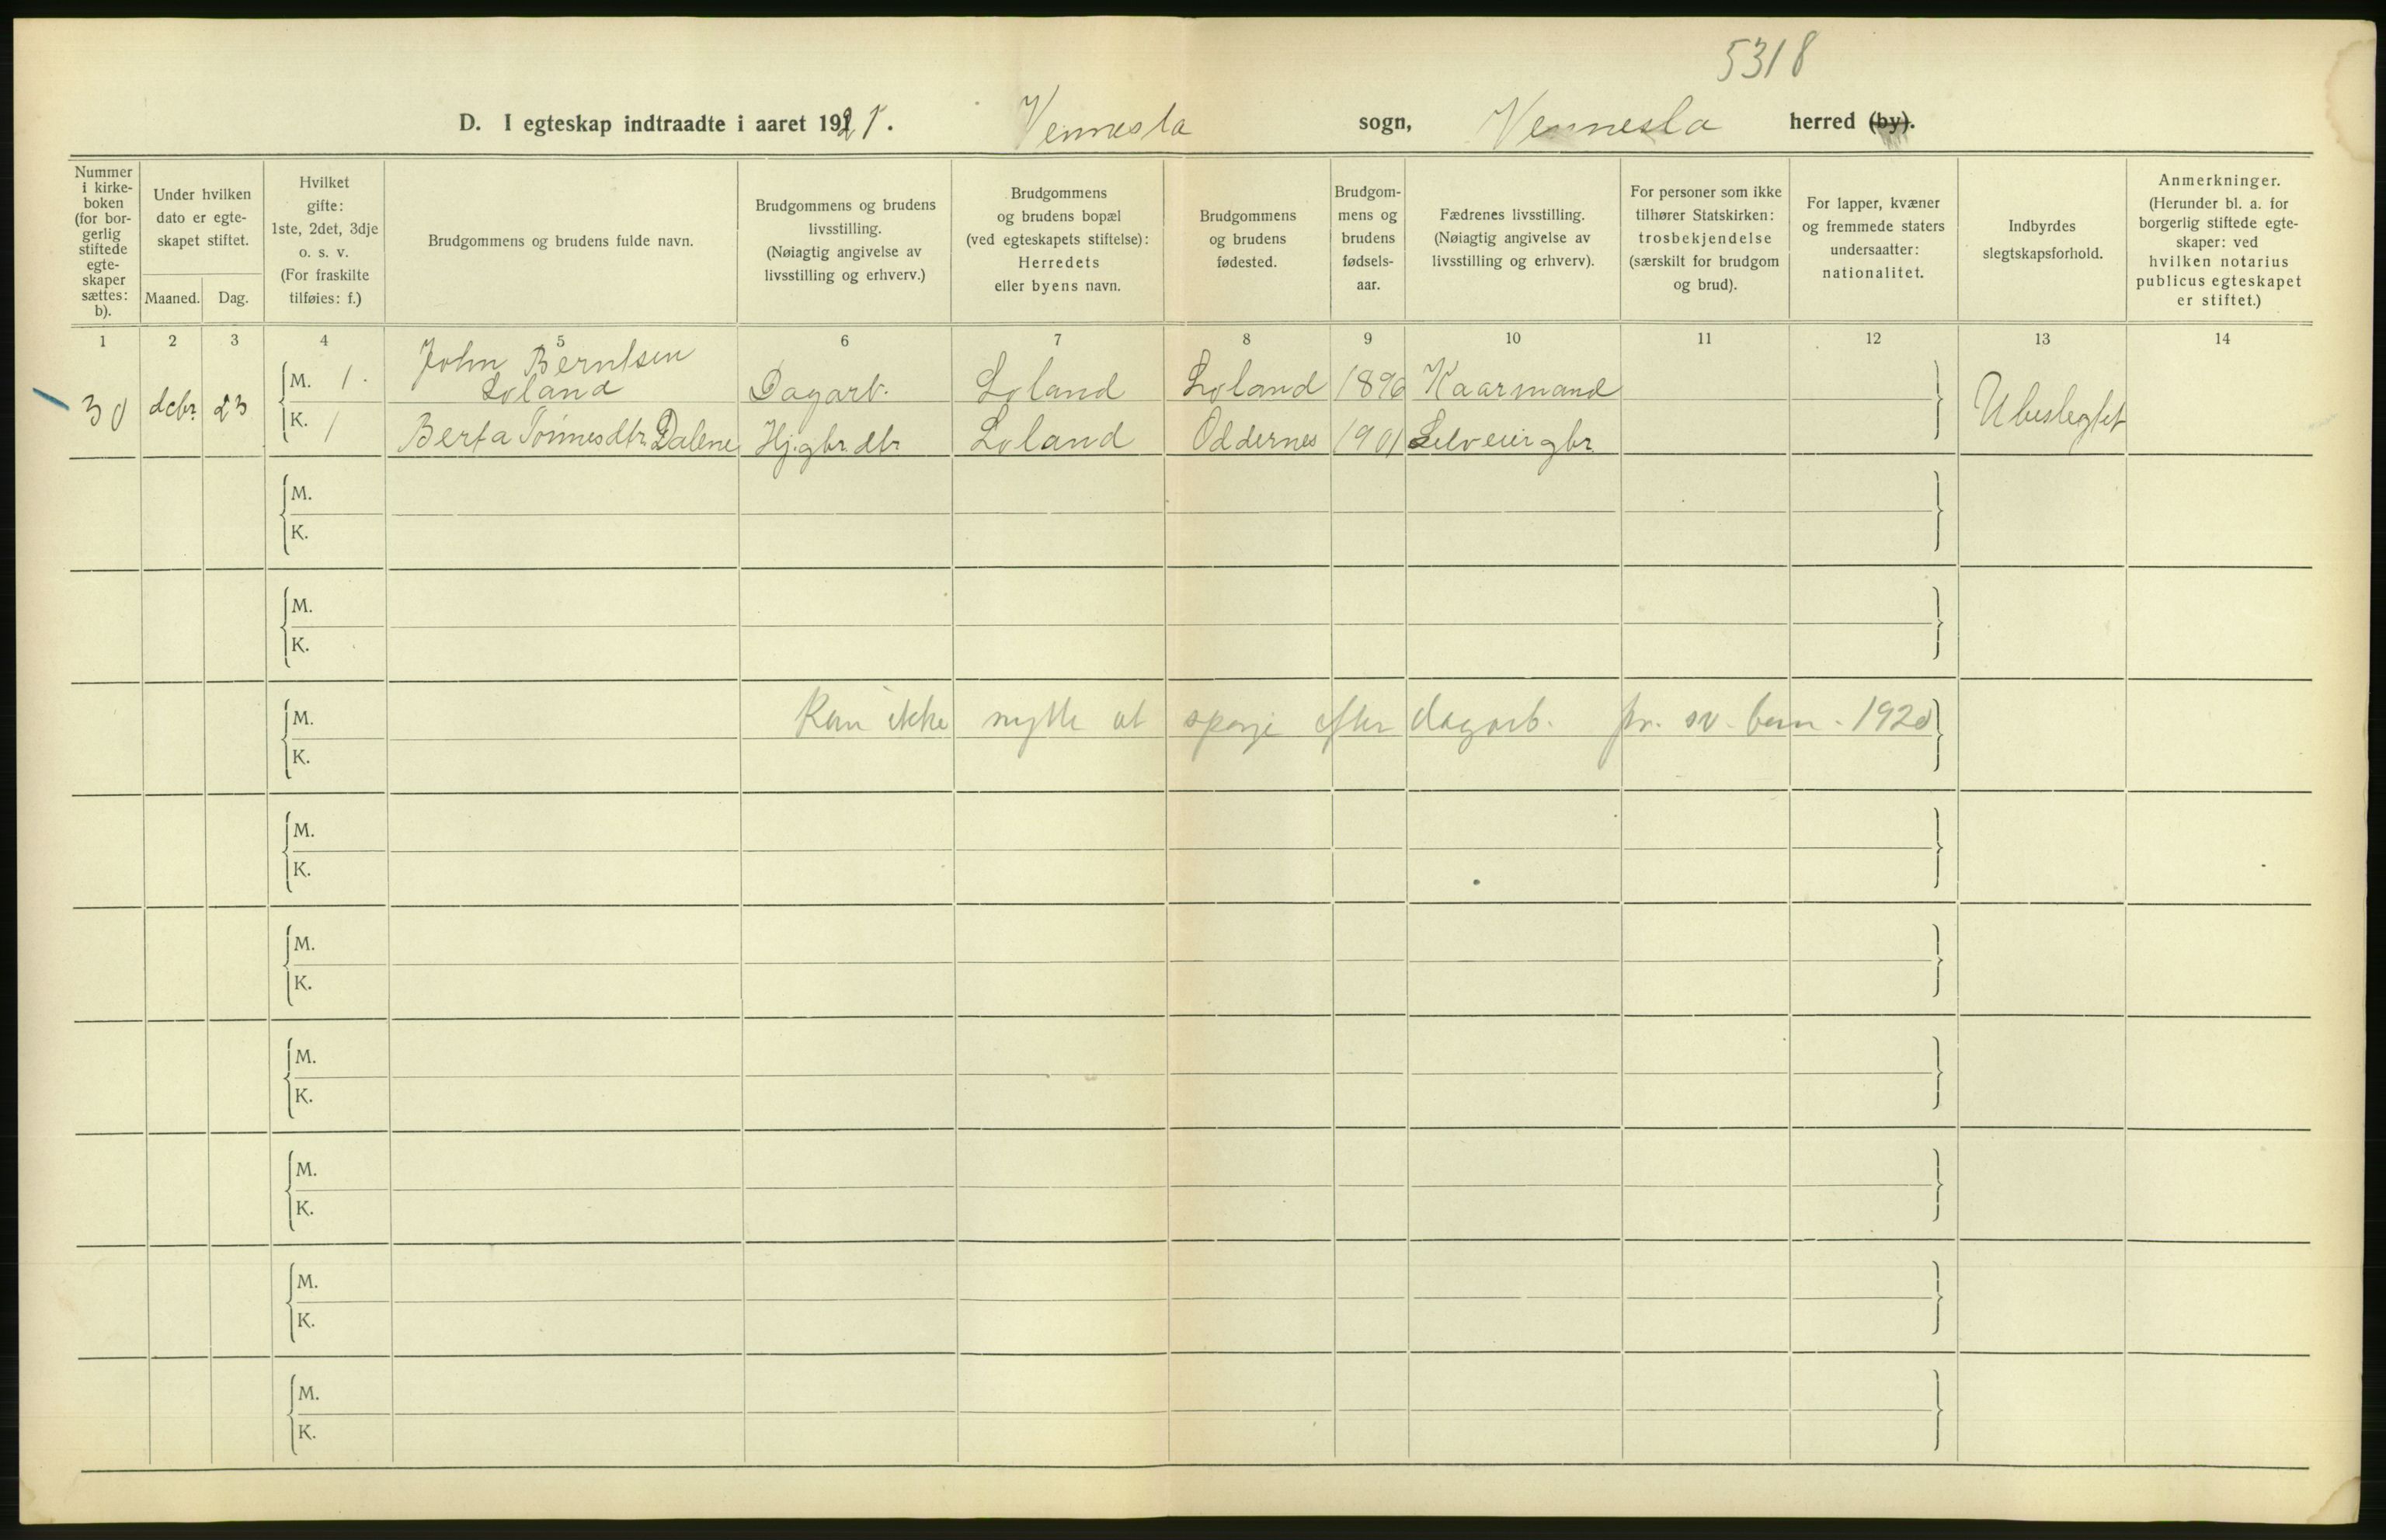 5318
D. I egteskap indtraadte i aaret 1921. Vennesla sogn, Vennesla herred (by).
Nummer i kirke-boken (for bor-gerlig stiftede egte-skaper sættes: b).
Under hvilken dato er egte-skapet stiftet.
Maaned. Dag.
Hvilket gifte: 1ste, 2det, 3dje o. s. v. (For fraskilte tilføies: f.)
Brudgommens og brudens fulde navn.
Brudgommens og brudens livsstilling. (Nøiagtig angivelse av livsstilling og erhverv.)
Brudgommens og brudens bopæl (ved egteskapets stiftelse): Herredets eller byens navn.
Brudgommens og brudens fødested.
Brudgom-mens og brudens fødsels-aar.
Fædrenes livsstilling. (Nøiagtig angivelse av livsstilling og erhverv).
For personer som ikke tilhører Statskirken: trosbekjendelse (særskilt for brudgom og brud).
For lapper, kvæner og fremmede staters undersaatter: nationalitet.
Indbyrdes slegtskapsforhold.
Anmerkninger. (Herunder bl. a. for borgerlig stiftede egte-skaper: ved hvilken notarius publicus egteskapet er stiftet.)
1 2 3 4 5 6 7 8 9 10 11 12 13 14
30 dcbr. 23 M. 1. John Berntsen Loland Dagarb. Loland Loland 1896 Kaarmand Ubeslegtet
K. 1 Berta Tønnesdtr. Dalene Hj. gbr. dtr Loland Oddernes 1901 Selveiergbr.
M.
K.
M.
K.
M. Kan ikke nytte at spørje efter dagarb. pr. sv. bem. 1920
K.
M.
K.
M.
K.
M.
K.
M.
K.
M.
K.
M.
K.